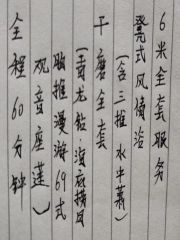 6米全套服务
凳式风情浴
(含三推 水中萧)
干磨全套
(青龙钻、海底捞月
胸推漫游69式
观音座莲)
全程60分钟